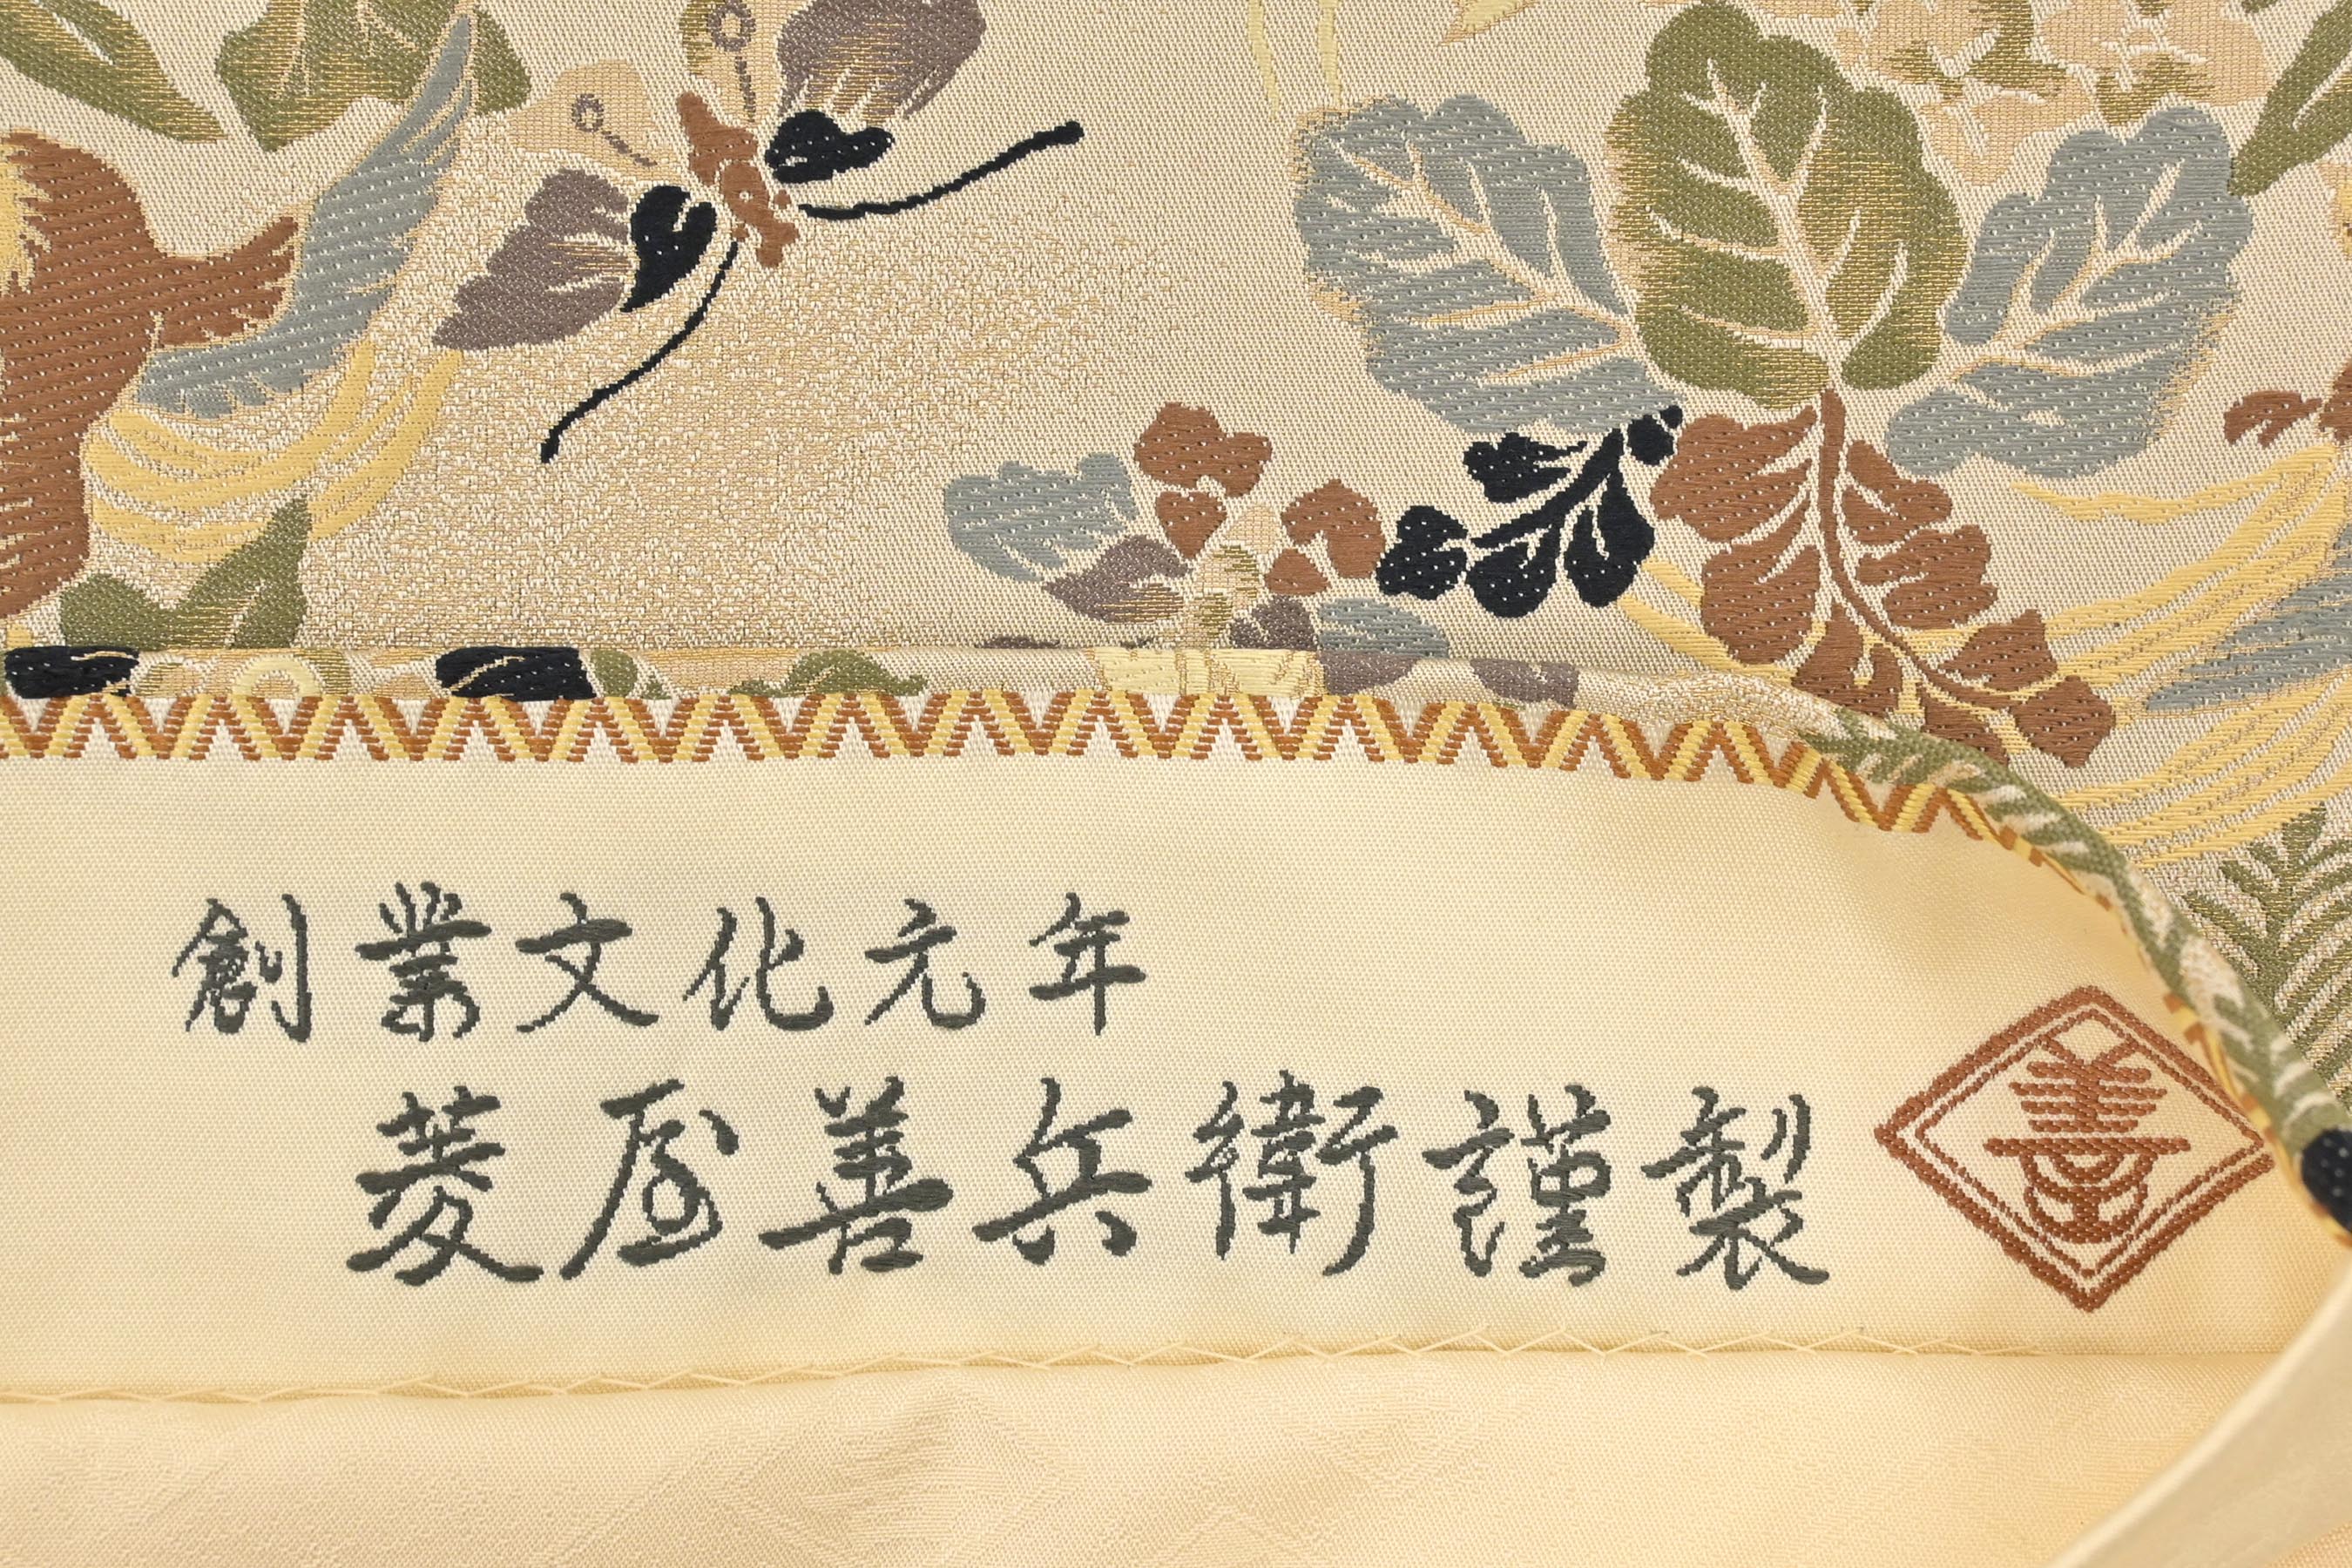 創業文化元年
菱屋善兵衛謹製
善